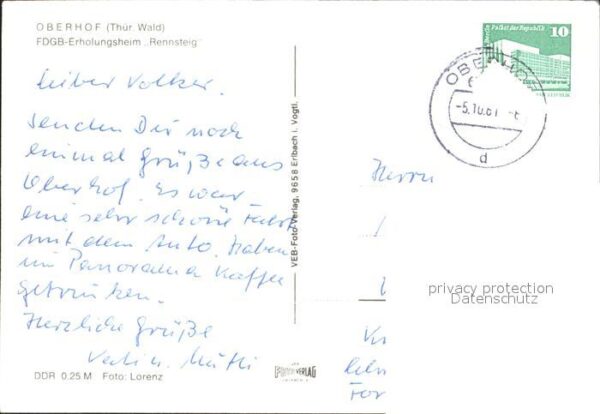 OBERHOF (Thür. Wald)
FDGB-Erholungsheim „Rennsteig"
Lieber Volker.
Senden Dir noch
einmal Grüße aus
Oberhof. Es war
eine sehr schöne Fahrt
mit dem Auto. Haben
im Panorama Kaffee
getrunken.
Herzliche Grüße
DDR 0.25 M Foto: Lorenz
VEB-Foto-Verlag, 9658 Erlbach i. Vogtl.
FOTO VERLAG
Berlin Palast der Republik 10
OBERHOF
-5.10.81
d
Herrn
privacy protection
Datenschutz